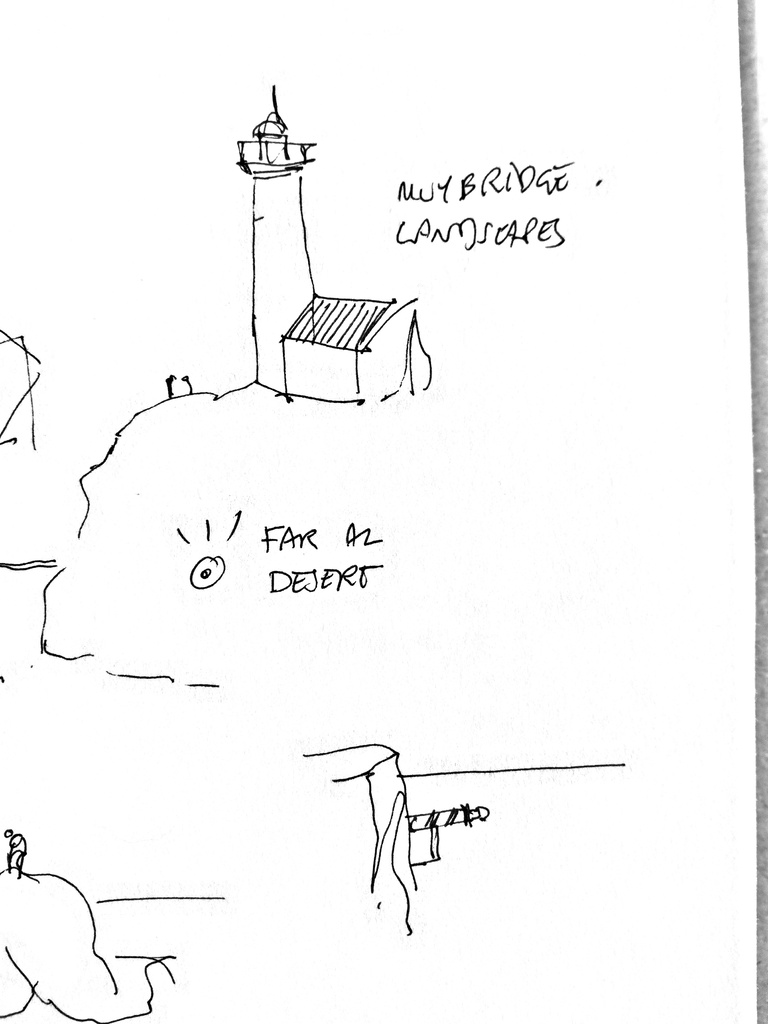 MUYBRIDGE.
LANDSCAPES
FAR AL
DESERT